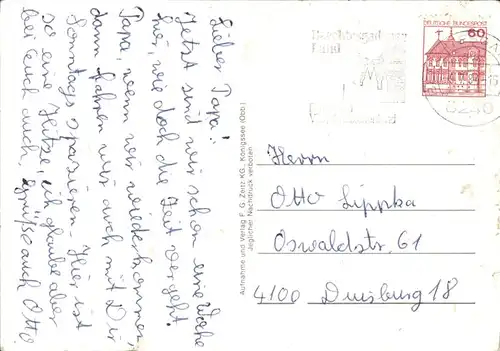 Lieber Papa!
Jetzt sind wir schon eine Woche
hier, wie doch die Zeit vergeht.
Papa, wenn wir wiederkommen,
dann fahren wir auch mit Dir
Sonntags spazieren. Hier ist
so eine Hitze, ich glaube aber
bei Euch auch, Grüße auch Otto
Aufnahme und Verlag F. G. Zeitz KG., Königssee (Obb.)
Jeglicher Nachdruck verboten
DEUTSCHE BUNDESPOST
60
Herrn
Otto Lippka
Oswaldstr. 61
4100 Duisburg 18